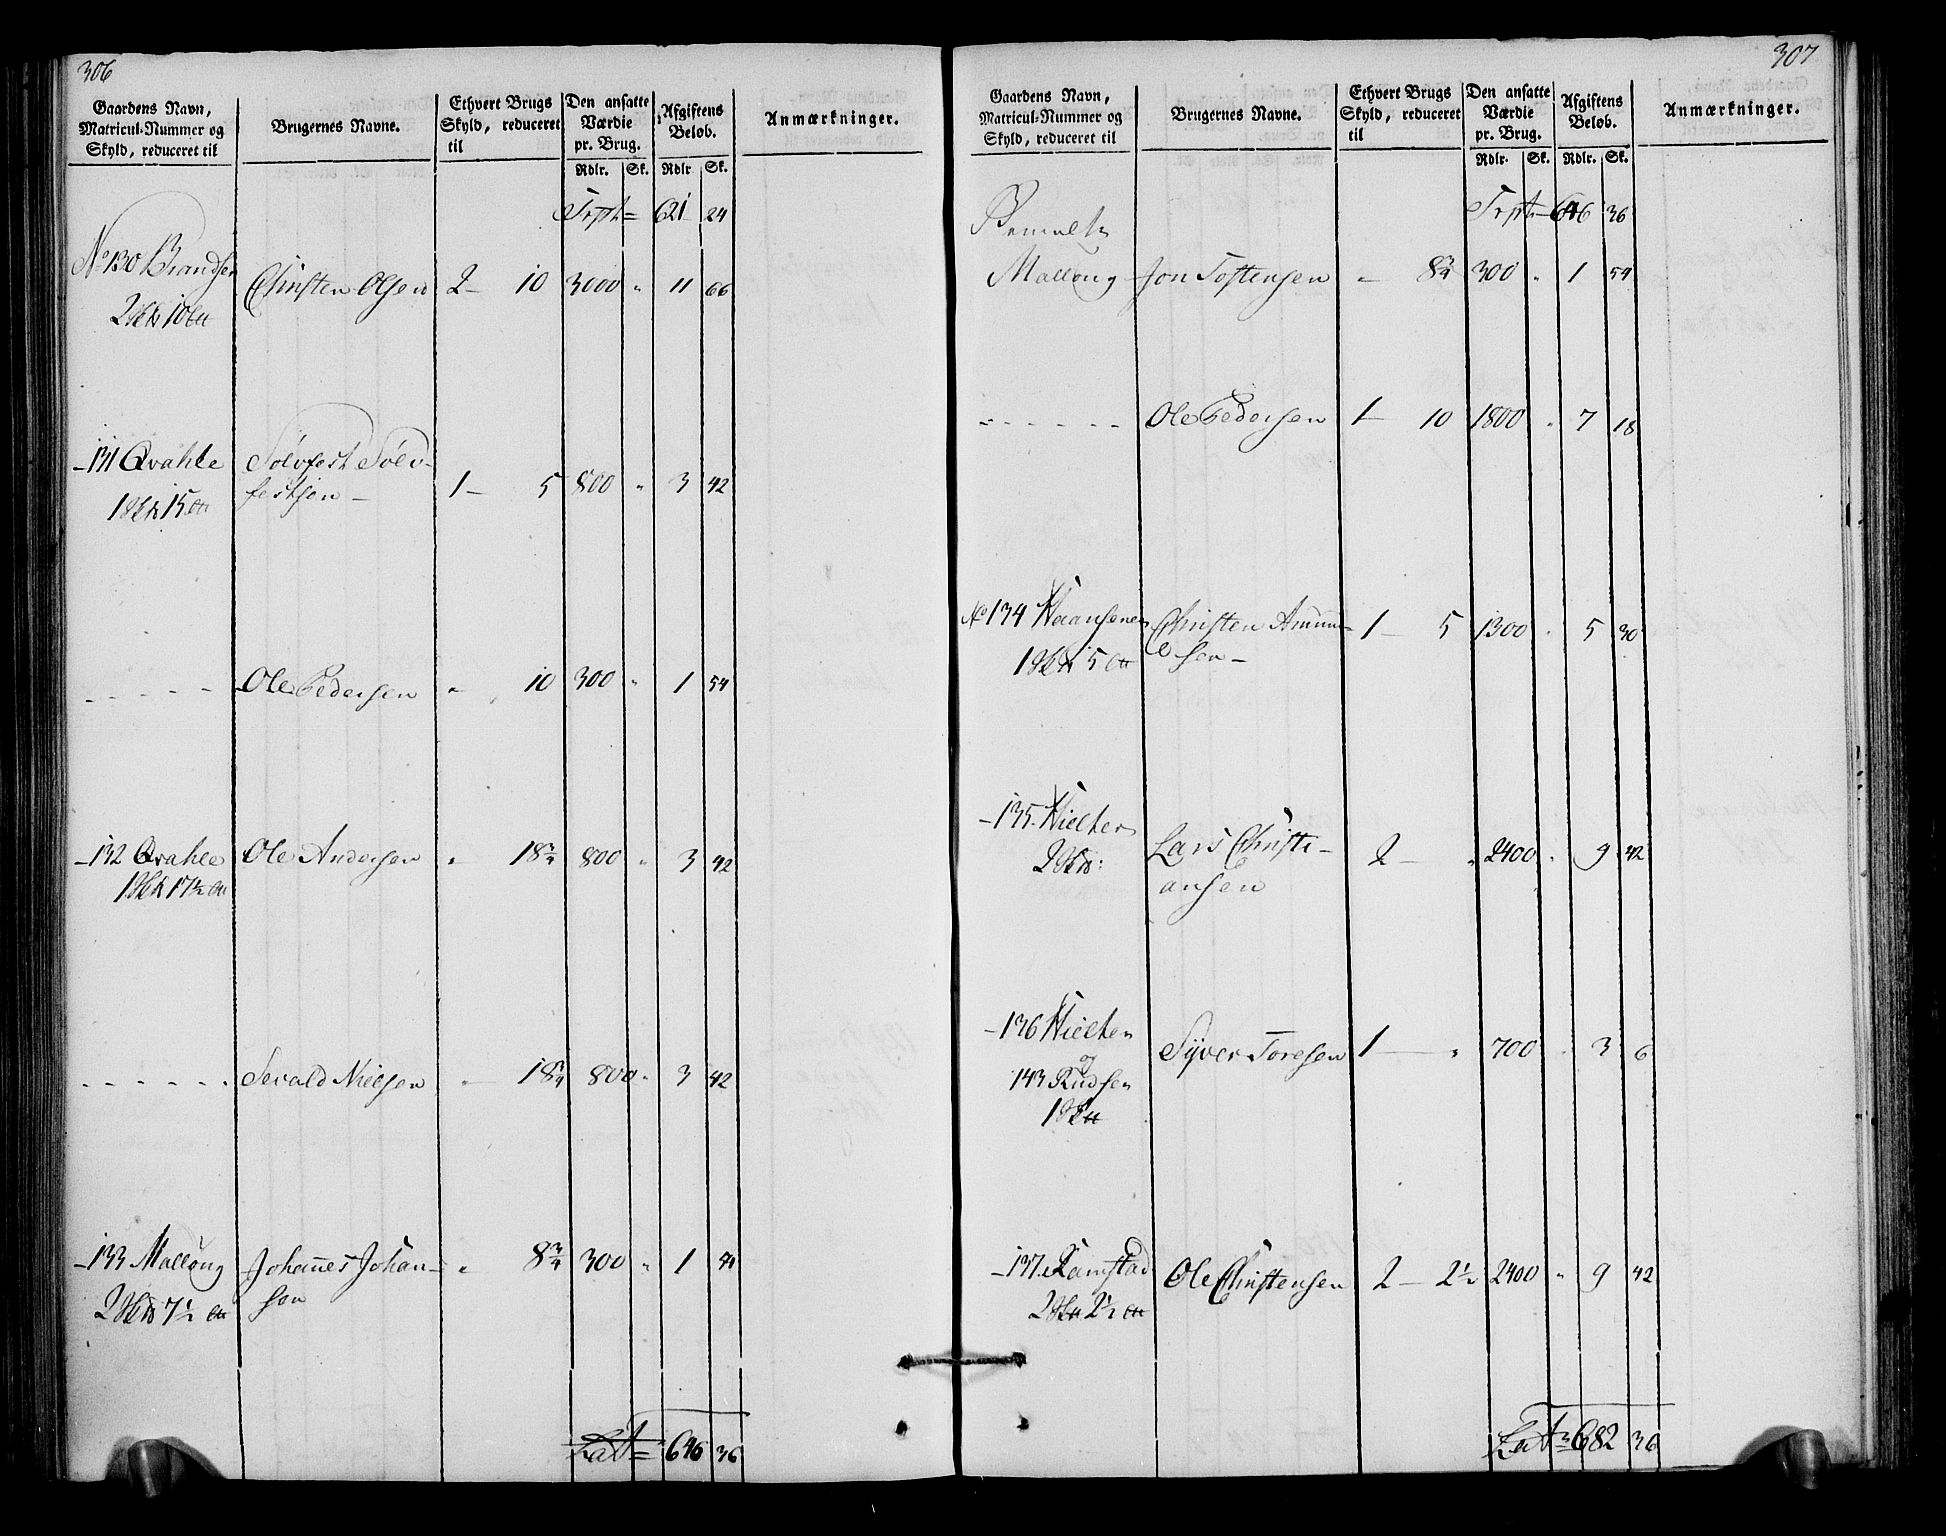 306
Gaardens Navn, Matricul-Nummer og Skyld, reduceret til
Brugernes Navne.
Ethvert Brugs Skyld, reduceret til
Den ansatte Værdie pr. Brug.
Afgiftens Beløb.
Anmærkninger.
Rdlr. Sk. Rdlr Sk.
Trpt= 621 24
No 130 Brandsen Christen Olsen 2 - 10 3000 " 11 66
131 Qvahle Sølvfest Sølv-
festsen - 1 - 5 800 " 3 42
- - - - - Ole Pedersen " 10 300 " 1 54
132 Qvahle Ole Andersen " 18 3/4 800 " 3 42
- - - - - - Sevald Nielsen " 18 3/4 800 " 3 42
133 Mallong Johannes Johan-
sen " 8 3/4 300 " 1
Lat= 646 36
307
Gaardens Navn, Matricul-Nummer og Skyld, reduceret til
Brugernes Navne.
Ethvert Brugs Skyld, reduceret til
Den ansatte Værdie pr. Brug.
Afgiftens Beløb.
Anmærkninger.
Rdlr. Sk. Rdlr. Sk.
Trpt= 646 36
Mallong Jon Tostensen - 8 3/4 300 " 1 54
- - - - - - Ole Pedersen 1 - 10 1800 " 7 18
No 134 Christen Amun-
sen - 1 - 5 1300 " 5 30
135 Lars Christi-
ansen 2 - " 2400 " 9 42
136
og
143 Knudsen Syver Toresen 1 - " 700 " 3 6
137 Ramstad Ole Christensen 2 - 2 1/2 2400 " 9 42
Lat= 682 36